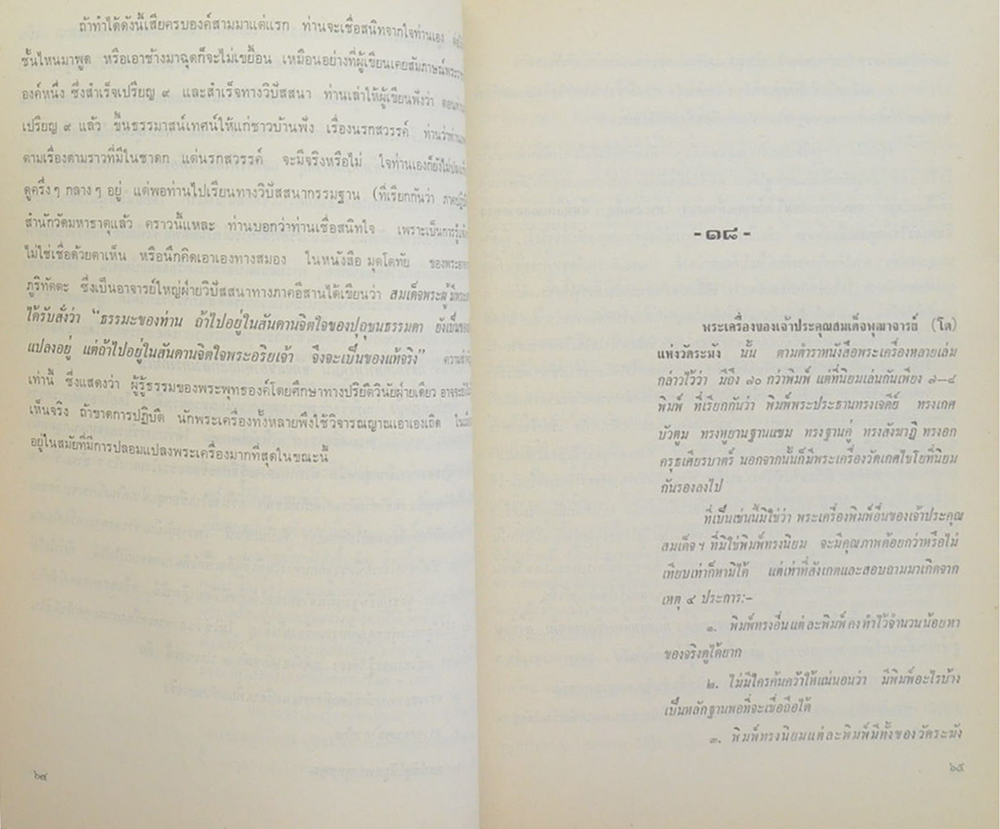 ถ้าทำได้ดังนี้เสียครบองค์สามมาแต่แรก ท่านจะเชื่อสนิทจากใจท่านเอง
ชั้นไหนมาพูด หรือเอาช้างมาฉุดก็จะไม่เขยื้อน เหมือนอย่างที่ผู้เขียนเคยสัมภาษณ์พระราช
องค์หนึ่ง ซึ่งสำเร็จเปรียญ ๙ และสำเร็จทางวิปัสสนา ท่านเล่าให้ผู้เขียนฟังว่า
เปรียญ ๙ แล้ว ขึ้นธรรมาสน์เทศน์ให้แก่ชาวบ้านฟัง เรื่องนรกสวรรค์
ตามเรื่องตามราวที่มีในชาดก แต่นรกสวรรค์ จะมีจริงหรือไม่ ใจท่านเองก็ยังไม่
ดูครึ่งๆ กลางๆ อยู่ แต่พอท่านไปเรียนทางวิปัสสนากรรมฐาน (ที่เรียกกันว่า
สำนักวัดมหาธาตุแล้ว คราวนี้แหละ ท่านบอกว่าท่านเชื่อสนิทใจ เพราะเป็นการรู้
ไม่ใช่เชื่อด้วยตาเห็น หรือนึกคิดเอาเองทางสมอง ในหนังสือ มุตโตทัย
ภูริทัตตะ ซึ่งเป็นอาจารย์ใหญ่ฝ่ายวิปัสสนาทางภาคอีสานได้เขียนว่า สมเด็จพระผู้มี
ได้รับสั่งว่า “ธรรมะของท่าน ถ้าไปอยู่ในสันดานจิตใจของปุถุชนธรรมดา ยังเป็นของ
แปลงอยู่ แต่ถ้าไปอยู่ในสันดานจิตใจพระอริยเจ้า จึงจะเป็นของแท้จริง”
เท่านี้ ซึ่งแสดงว่า ผู้รู้ธรรมของพระพุทธองค์โดยศึกษาทางปริยัติวินัยฝ่ายเดียว
เห็นจริง ถ้าขาดการปฏิบัติ นักพระเครื่องทั้งหลายพึงใช้วิจารณญาณเอาเองเถิด
อยู่ในสมัยที่มีการปลอมแปลงพระเครื่องมากที่สุดในขณะนี้
๖๔
-๑๘-
พระเครื่องของเจ้าประคุณสมเด็จพุฒาจารย์ (โต)
แห่งวัดระฆัง นั้น ตามตำราหนังสือพระเครื่องหลายเล่ม
กล่าวไว้ว่า มีถึง ๗๐ กว่าพิมพ์ แต่ที่นิยมเล่นกันเพียง ๗–๘
พิมพ์ ที่เรียกกันว่า พิมพ์พระประธานทรงเจดีย์ ทรงเกศ
บัวตูม ทรงหูยานฐานแซม ทรงฐานคู่ ทรงสังฆาฏิ ทรงอก
ครุฑเศียรบาตร์ นอกจากนั้นก็มีพระเครื่องวัดเกศไชโยที่นิยม
กันรองลงไป
ที่เป็นเช่นนี้มิใช่ว่า พระเครื่องพิมพ์อื่นของเจ้าประคุณ
สมเด็จฯ ที่มิใช่พิมพ์ทรงนิยม จะมีคุณภาพด้อยกว่าหรือไม่
เทียบเท่าก็หามิได้ แต่เท่าที่สังเกตและสอบถามมาเกิดจาก
เหตุ ๔ ประการ:–
๑. พิมพ์ทรงอื่นแต่ละพิมพ์คงทำไว้จำนวนน้อยหา
ของจริงดูได้ยาก
๒. ไม่มีใครค้นคว้าให้แน่นอนว่า มีพิมพ์อะไรบ้าง
เป็นหลักฐานพอที่จะเชื่อถือได้
๓. พิมพ์ทรงนิยมแต่ละพิมพ์มีทั้งของวัดระฆัง
๖๕